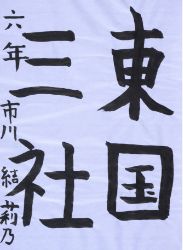 東国
三社
六年 市川 結莉乃